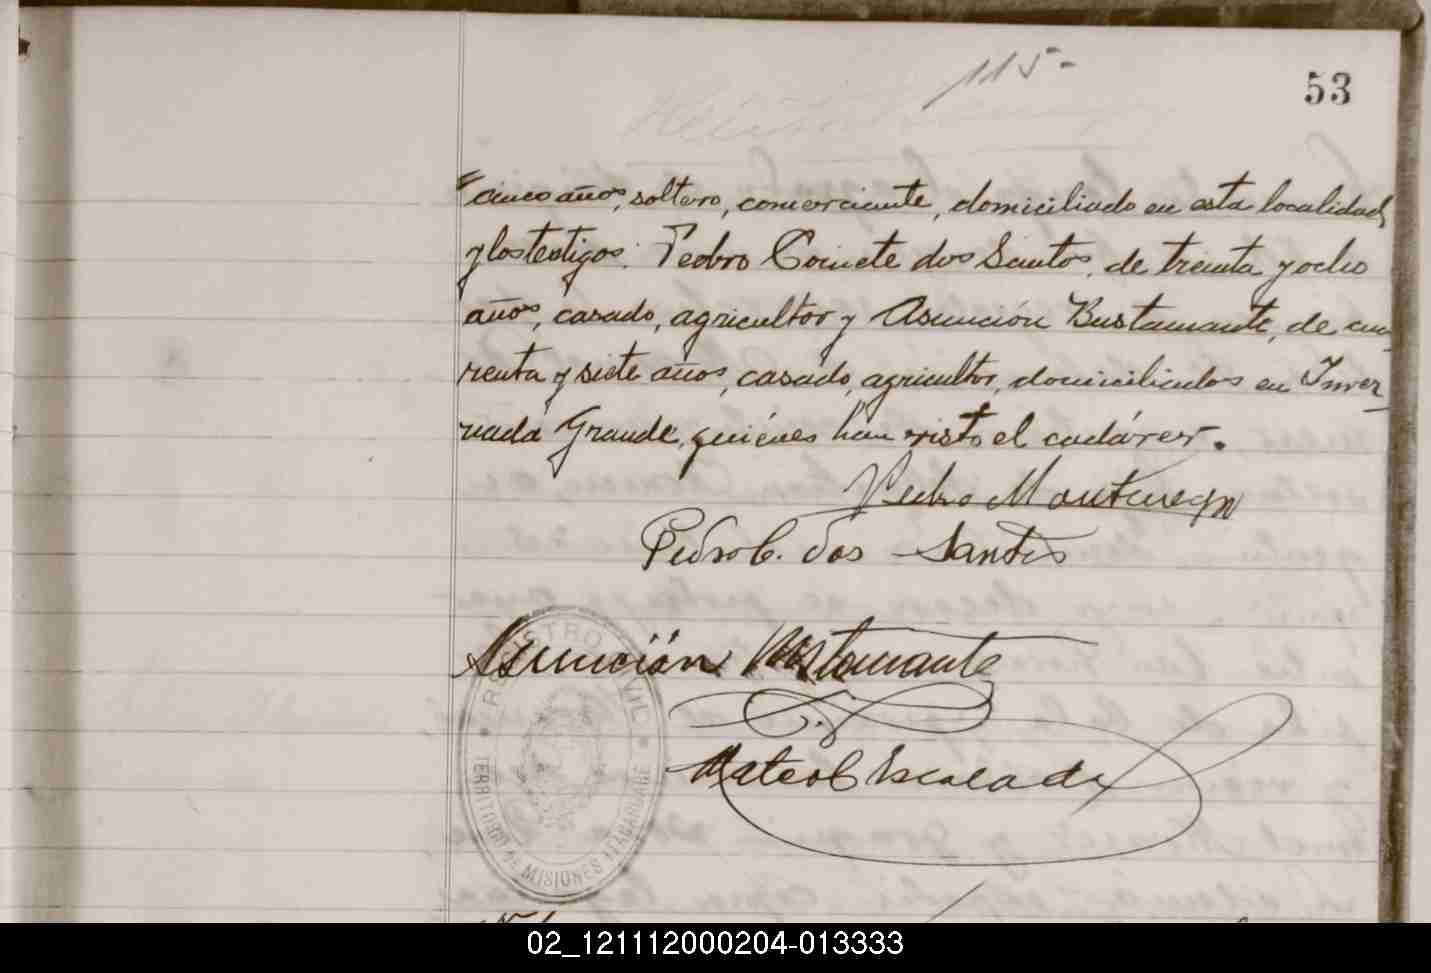 115-
53
cinco años, soltero, comerciante, domiciliado en esta localidad
y los testigos: Pedro Coinete dos Santos, de treinta y ocho
años, casado, agricultor y Asunción Bustamante, de cua
renta y siete años, casado, agricultor, domiciliados en Inver_
nada Grande, quiénes han visto el cadáver.
Pedro Montenegro
Pedro C. dos Santos
Asunción Bustamante
Mateo C. Escalada
REGISTRO CIVIL
TERRITORIO DE MISIONES
02_121112000204-013333